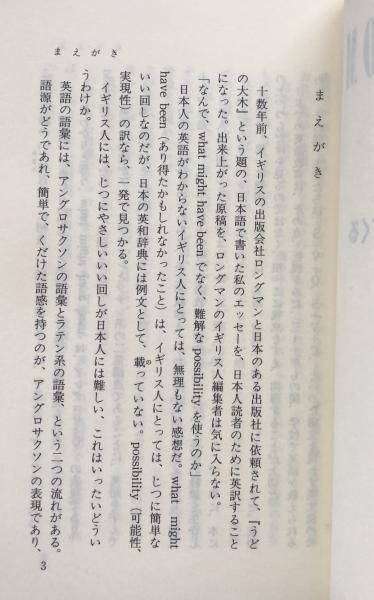 まえがき
まえがき
十数年前、イギリスの出版会社ロングマンと日本のある出版社に依頼されて、『うど
の大木』という題の、日本語で書いた私のエッセーを、日本人読者のために英訳すること
になった。出来上がった原稿を、ロングマンのイギリス人編集者は気に入らない。
「なんで、what might have been でなく、難解な possibility を使うのか」
日本人の英語がわからないイギリス人にとっては、無理もない感想だ。what might
have been（あり得たかもしれなかったこと）は、イギリス人にとっては、じつに簡単な
いい回しなのだが、日本の英和辞典には例文として、載っていない。possibility（可能性、
実現性）の訳なら、一発で見つかる。
イギリス人には、じつにやさしいいい回しが日本人には難しい、これはいったいどうい
うわけか。
英語の語彙には、アングロサクソンの語彙とラテン系の語彙、という二つの流れがある。
語源がどうであれ、簡単で、くだけた語感を持つのが、アングロサクソンの表現であり、
3